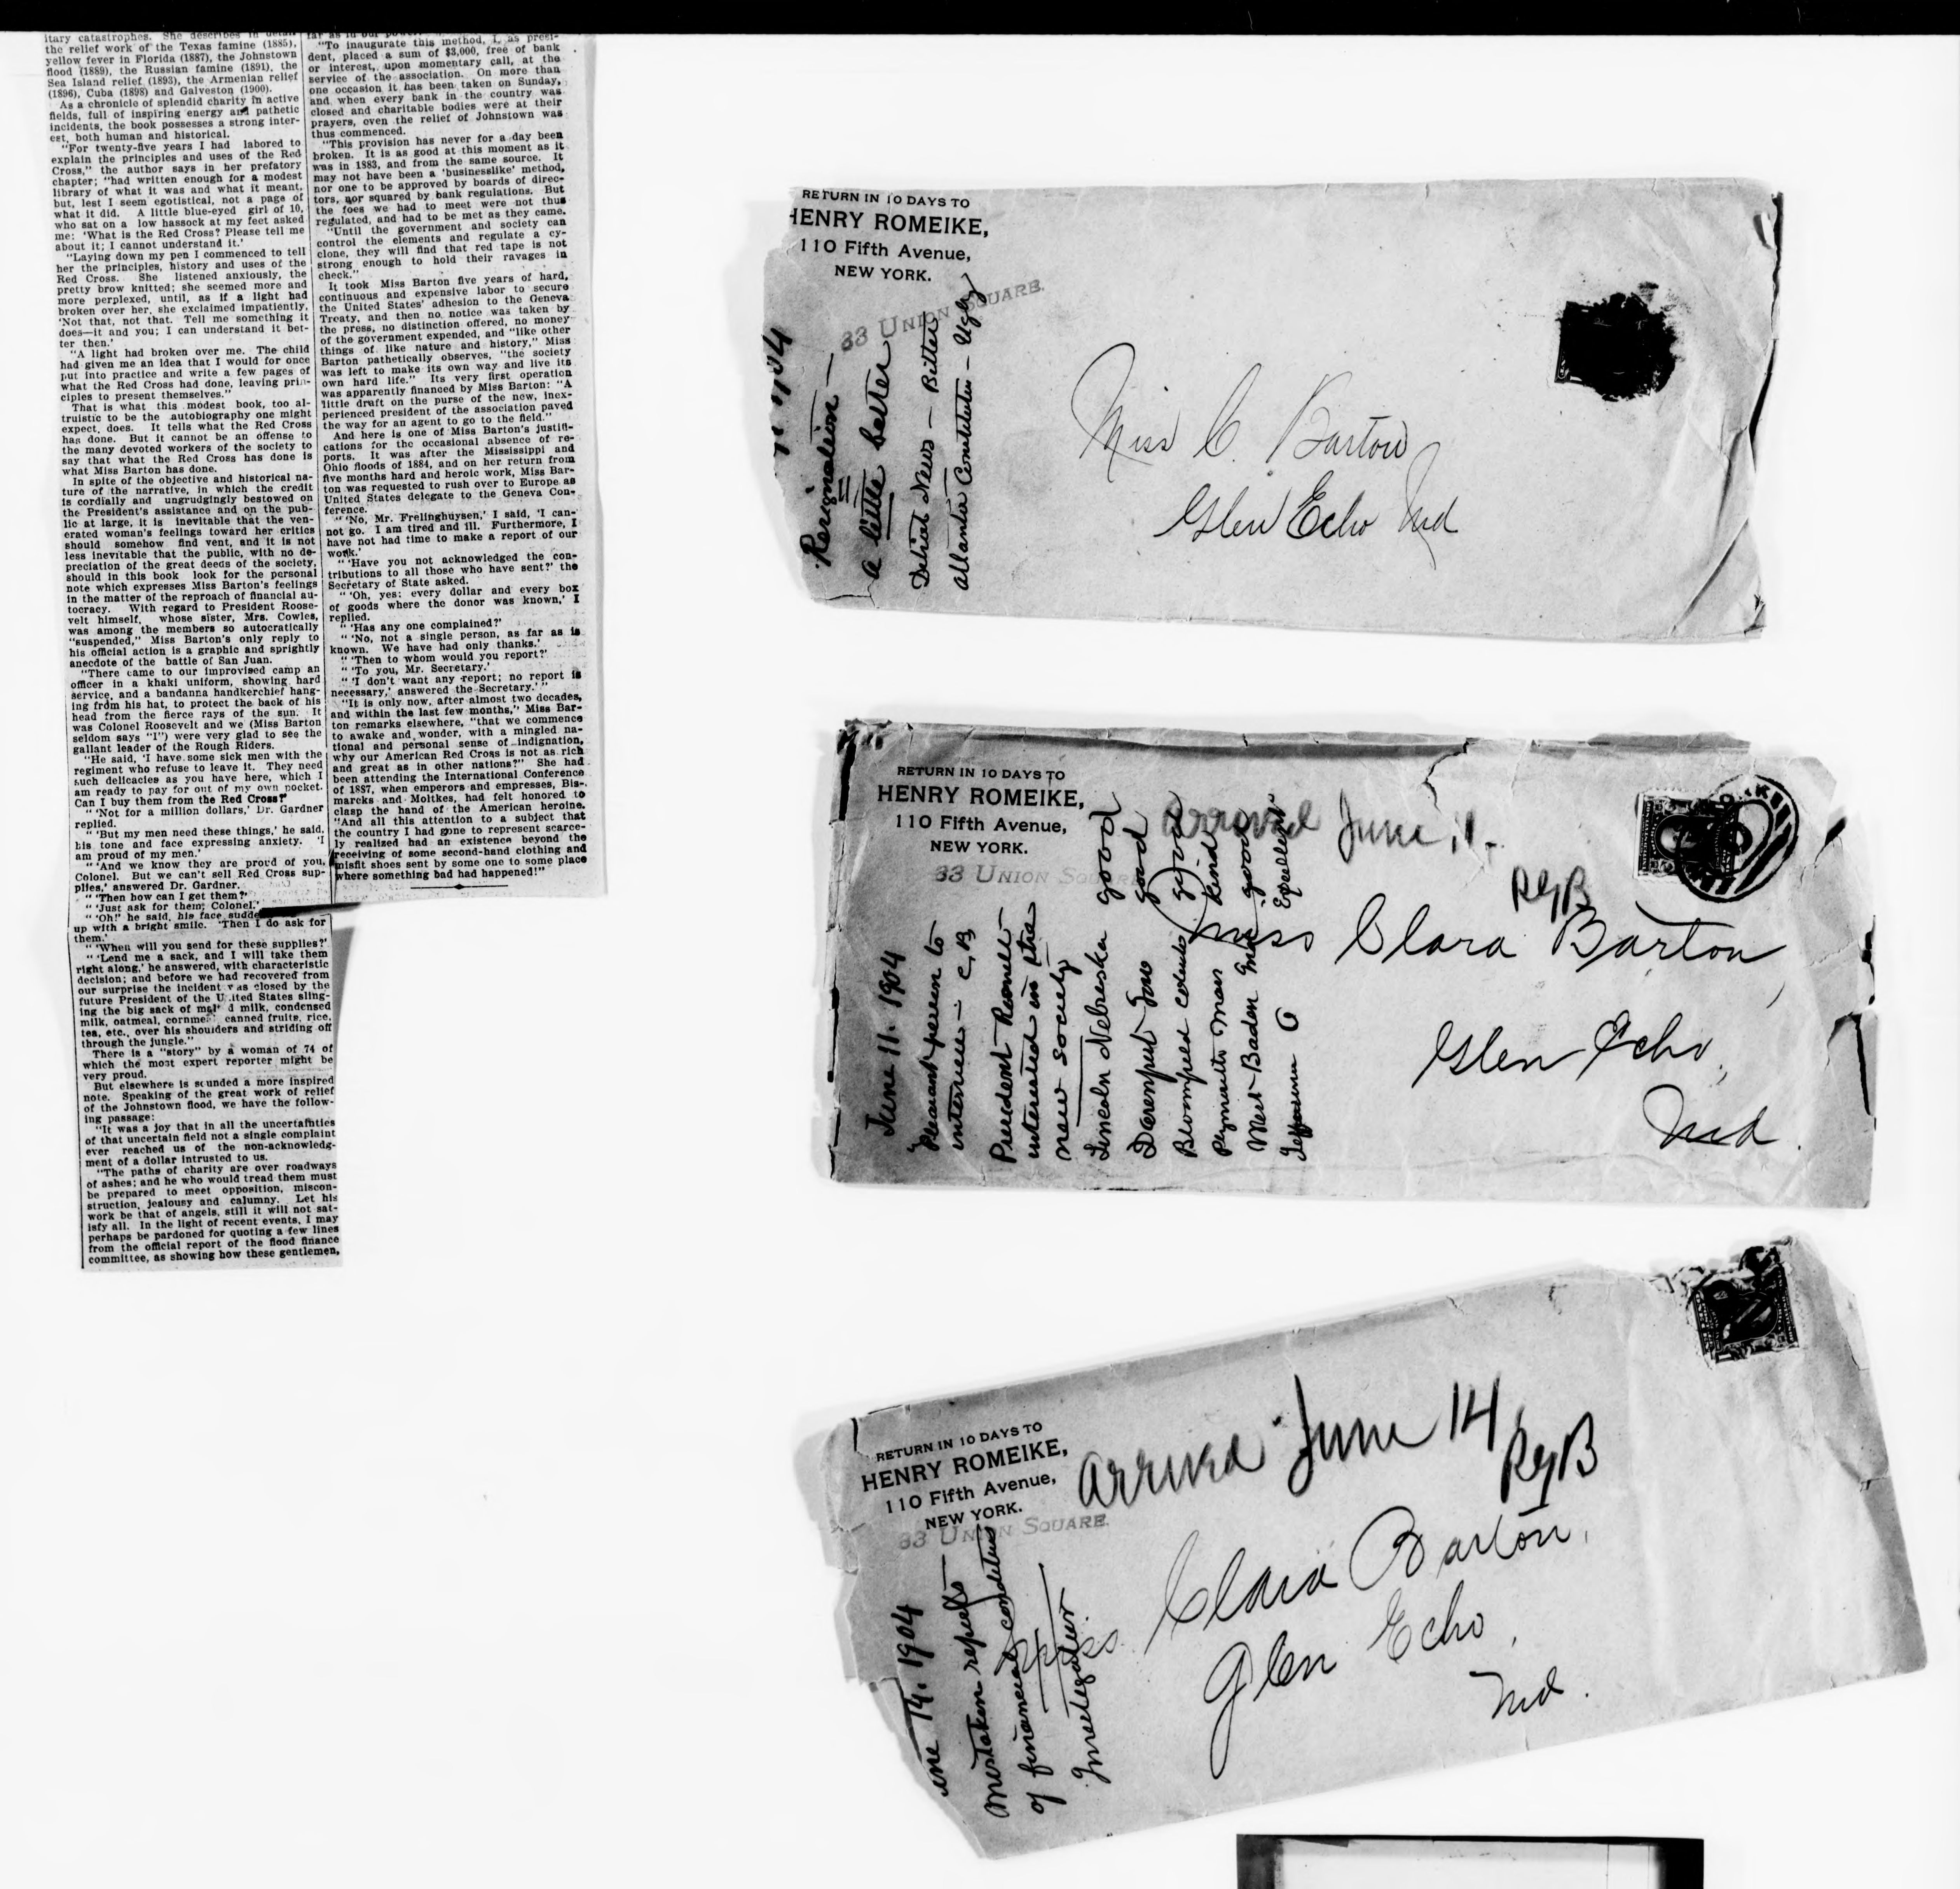 itary catastrophes. She describes in detail
the relief work of the Texas famine (1885),
yellow fever in Florida (1887), the Johnstown
flood (1889), the Russian famine (1891), the
Sea Island relief (1893), the Armenian relief
(1896), Cuba (1898) and Galveston (1900).
As a chronicle of splendid charity in active
fields, full of inspiring energy and pathetic
incidents, the book possesses a strong inter-
est, both human and historical.
"For twenty-five years I had labored to
explain the principles and uses of the Red
Cross," the author says in her prefatory
chapter; "had written enough for a modest
library of what it was and what it meant,
but, lest I seem egotistical, not a page of
what it did. A little blue-eyed girl of 10,
who sat on a low hassock at my feet asked
me: 'What is the Red Cross? Please tell me
about it; I cannot understand it.'
"Laying down my pen I commenced to tell
her the principles, history and uses of the
Red Cross. She listened anxiously, the
pretty brow knitted; she seemed more and
more perplexed, until, as if a light had
broken over her, she exclaimed impatiently,
'Not that, not that. Tell me something it
does—it and you; I can understand it bet-
ter then.'
"A light had broken over me. The child
had given me an idea that I would for once
put into practice and write a few pages of
what the Red Cross had done, leaving prin-
ciples to present themselves."
That is what this modest book, too al-
truistic to be the autobiography one might
expect, does. It tells what the Red Cross
has done. But it cannot be an offense to
the many devoted workers of the society to
say that what the Red Cross has done is
what Miss Barton has done.
In spite of the objective and historical na-
ture of the narrative, in which the credit
is cordially and ungrudgingly bestowed on
the President's assistance and on the pub-
lic at large, it is inevitable that the ven-
erated woman's feelings toward her critics
should somehow find vent, and it is not
less inevitable that the public, with no de-
preciation of the great deeds of the society,
should in this book look for the personal
note which expresses Miss Barton's feelings
in the matter of the reproach of financial au-
tocracy. With regard to President Roose-
velt himself, whose sister, Mrs. Cowles,
was among the members so autocratically
"suspended," Miss Barton's only reply to
his official action is a graphic and sprightly
anecdote of the battle of San Juan.
"There came to our improvised camp an
officer in a khaki uniform, showing hard
service, and a bandanna handkerchief hang-
ing from his hat, to protect the back of his
head from the fierce rays of the sun. It
was Colonel Roosevelt and we (Miss Barton
seldom says "I") were very glad to see the
gallant leader of the Rough Riders.
"He said, 'I have some sick men with the
regiment who refuse to leave it. They need
such delicacies as you have here, which I
am ready to pay for out of my own pocket.
Can I buy them from the Red Cross?'
" 'Not for a million dollars,' Dr. Gardner
replied.
" 'But my men need these things,' he said,
his tone and face expressing anxiety. 'I
am proud of my men.'
" 'And we know they are proud of you,
Colonel. But we can't sell Red Cross sup-
plies,' answered Dr. Gardner.
" 'Then how can I get them?'
" 'Just ask for them, Colonel.'
" 'Oh!' he said, his face sudde
up with a bright smile. 'Then I do ask for
them.'
" 'When will you send for these supplies?'
" 'Lend me a sack, and I will take them
right along,' he answered, with characteristic
decision; and before we had recovered from
our surprise the incident was closed by the
future President of the United States sling-
ing the big sack of malted milk, condensed
milk, oatmeal, cornmeal, canned fruits, rice,
tea, etc., over his shoulders and striding off
through the jungle."
There is a "story" by a woman of 74 of
which the most expert reporter might be
very proud.
But elsewhere is sounded a more inspired
note. Speaking of the great work of relief
of the Johnstown flood, we have the follow-
ing passage:
"It was a joy that in all the uncertainties
of that uncertain field not a single complaint
ever reached us of the non-acknowledg-
ment of a dollar intrusted to us.
"The paths of charity are over roadways
of ashes; and he who would tread them must
be prepared to meet opposition, miscon-
struction, jealousy and calumny. Let his
work be that of angels, still it will not sat-
isfy all. In the light of recent events, I may
perhaps be pardoned for quoting a few lines
from the official report of the flood finance
committee, as showing how these gentlemen,
far as in our power.
"To inaugurate this method, I, as presi-
dent, placed a sum of $3,000, free of bank
or interest, upon momentary call, at the
service of the association. On more than
one occasion it has been taken on Sunday,
and when every bank in the country was
closed and charitable bodies were at their
prayers, even the relief of Johnstown was
thus commenced.
"This provision has never for a day been
broken. It is as good at this moment as it
was in 1883, and from the same source. It
may not have been a 'businesslike' method,
nor one to be approved by boards of direc-
tors, nor squared by bank regulations. But
the foes we had to meet were not thus
regulated, and had to be met as they came.
"Until the government and society can
control the elements and regulate a cy-
clone, they will find that red tape is not
strong enough to hold their ravages in
check."
It took Miss Barton five years of hard,
continuous and expensive labor to secure
the United States' adhesion to the Geneva
Treaty, and then no notice was taken by
the press, no distinction offered, no money
of the government expended, and "like other
things of like nature and history," Miss
Barton pathetically observes, "the society
was left to make its own way and live its
own hard life." Its very first operation
was apparently financed by Miss Barton: "A
little draft on the purse of the new, inex-
perienced president of the association paved
the way for an agent to go to the field."
And here is one of Miss Barton's justifi-
cations for the occasional absence of re-
ports. It was after the Mississippi and
Ohio floods of 1884, and on her return from
five months hard and heroic work, Miss Bar-
ton was requested to rush over to Europe as
United States delegate to the Geneva Con-
ference.
" 'No, Mr. Frelinghuysen,' I said, 'I can-
not go. I am tired and ill. Furthermore, I
have not had time to make a report of our
work.'
" 'Have you not acknowledged the con-
tributions to all those who have sent?' the
Secretary of State asked.
" 'Oh, yes; every dollar and every box
of goods where the donor was known,' I
replied.
" 'Has any one complained?'
" 'No, not a single person, as far as is
known. We have had only thanks.'
" 'Then to whom would you report?'
" 'To you, Mr. Secretary.'
" 'I don't want any report; no report is
necessary,' answered the Secretary.' "
"It is only now, after almost two decades,
and within the last few months," Miss Bar-
ton remarks elsewhere, "that we commence
to awake and wonder, with a mingled na-
tional and personal sense of indignation,
why our American Red Cross is not as rich
and great as in other nations?" She had
been attending the International Conference
of 1887, when emperors and empresses, Bis-
marcks and Moltkes, had felt honored to
clasp the hand of the American heroine.
"And all this attention to a subject that
the country I had gone to represent scarce-
ly realized had an existence beyond the
receiving of some second-hand clothing and
misfit shoes sent by some one to some place
where something bad had happened!"
RETURN IN 10 DAYS TO
HENRY ROMEIKE,
110 Fifth Avenue,
NEW YORK.
33 UNION SQUARE.
1904
Resignation —
a little better
Detroit News — Bitter
Atlanta Constitution — Ugly
Miss C. Barton
Glen Echo Md
RETURN IN 10 DAYS TO
HENRY ROMEIKE,
110 Fifth Avenue,
NEW YORK.
33 UNION SQUARE
Arrived June 11.
RGB
June 11. 1904
Pleasant person to
interview — C B
President Roosevelt
interested in the
new society
Lincoln Nebraska good
Davenport Iowa good
good
Plymouth Mass kind
West Baden good
Jefferson O Excellent
Miss Clara Barton
Glen Echo,
Md.
RETURN IN 10 DAYS TO
HENRY ROMEIKE,
110 Fifth Avenue,
NEW YORK.
33 UNION SQUARE.
Arrived June 14
RGB
une 14. 1904
mistaken reports
of financial conditions
Investigation
Miss Clara Barton,
Glen Echo,
Md.